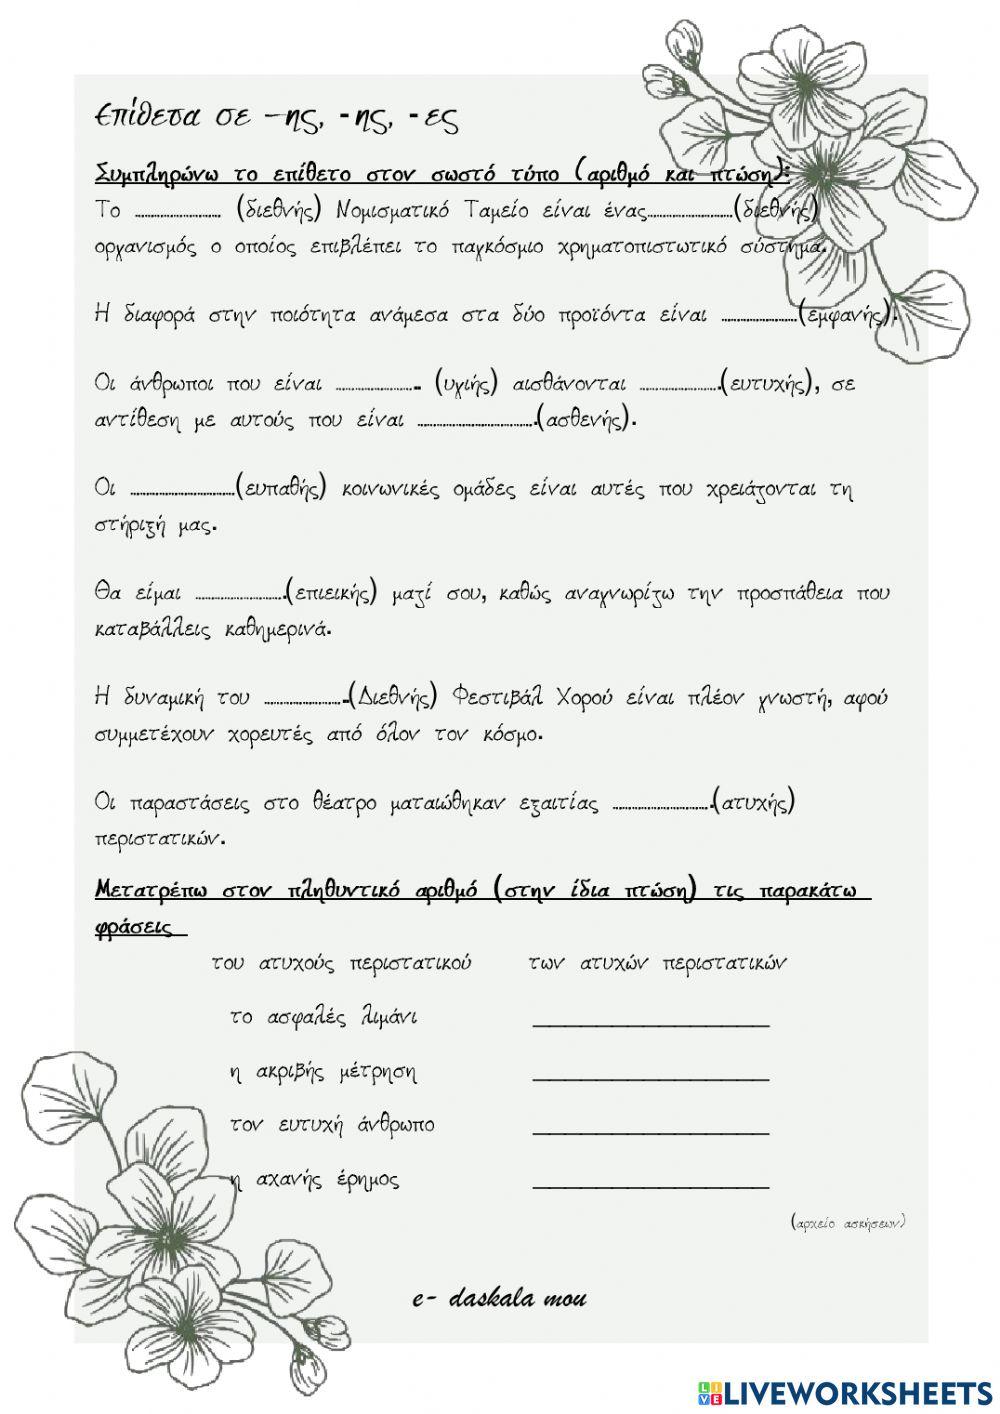 Επίθετα σε –ης, -ης, -ες
Συμπληρώνω το επίθετο στον σωστό τύπο (αριθμό και πτώση):
Το ........................ (διεθνής) Νομισματικό Ταμείο είναι ένας........................(διεθνής)
οργανισμός ο οποίος επιβλέπει το παγκόσμιο χρηματοπιστωτικό σύστημα.
Η διαφορά στην ποιότητα ανάμεσα στα δύο προϊόντα είναι .....................(εμφανής).
Οι άνθρωποι που είναι ....................... (υγιής) αισθάνονται .......................(ευτυχής), σε
αντίθεση με αυτούς που είναι .................................(ασθενής).
Οι .............................(ευπαθής) κοινωνικές ομάδες είναι αυτές που χρειάζονται τη
στήριξή μας.
Θα είμαι .........................(επιεικής) μαζί σου, καθώς αναγνωρίζω την προσπάθεια που
καταβάλλεις καθημερινά.
Η δυναμική του ........................(Διεθνής) Φεστιβάλ Χορού είναι πλέον γνωστή, αφού
συμμετέχουν χορευτές από όλον τον κόσμο.
Οι παραστάσεις στο θέατρο ματαιώθηκαν εξαιτίας ............................(ατυχής)
περιστατικών.
Μετατρέπω στον πληθυντικό αριθμό (στην ίδια πτώση) τις παρακάτω
φράσεις
του ατυχούς περιστατικού των ατυχών περιστατικών
το ασφαλές λιμάνι ____________________
η ακριβής μέτρηση ____________________
τον ευτυχή άνθρωπο ____________________
η αχανής έρημος ____________________
(αρχείο ασκήσεων)
e- daskala mou
LIVE LIVEWORKSHEETS